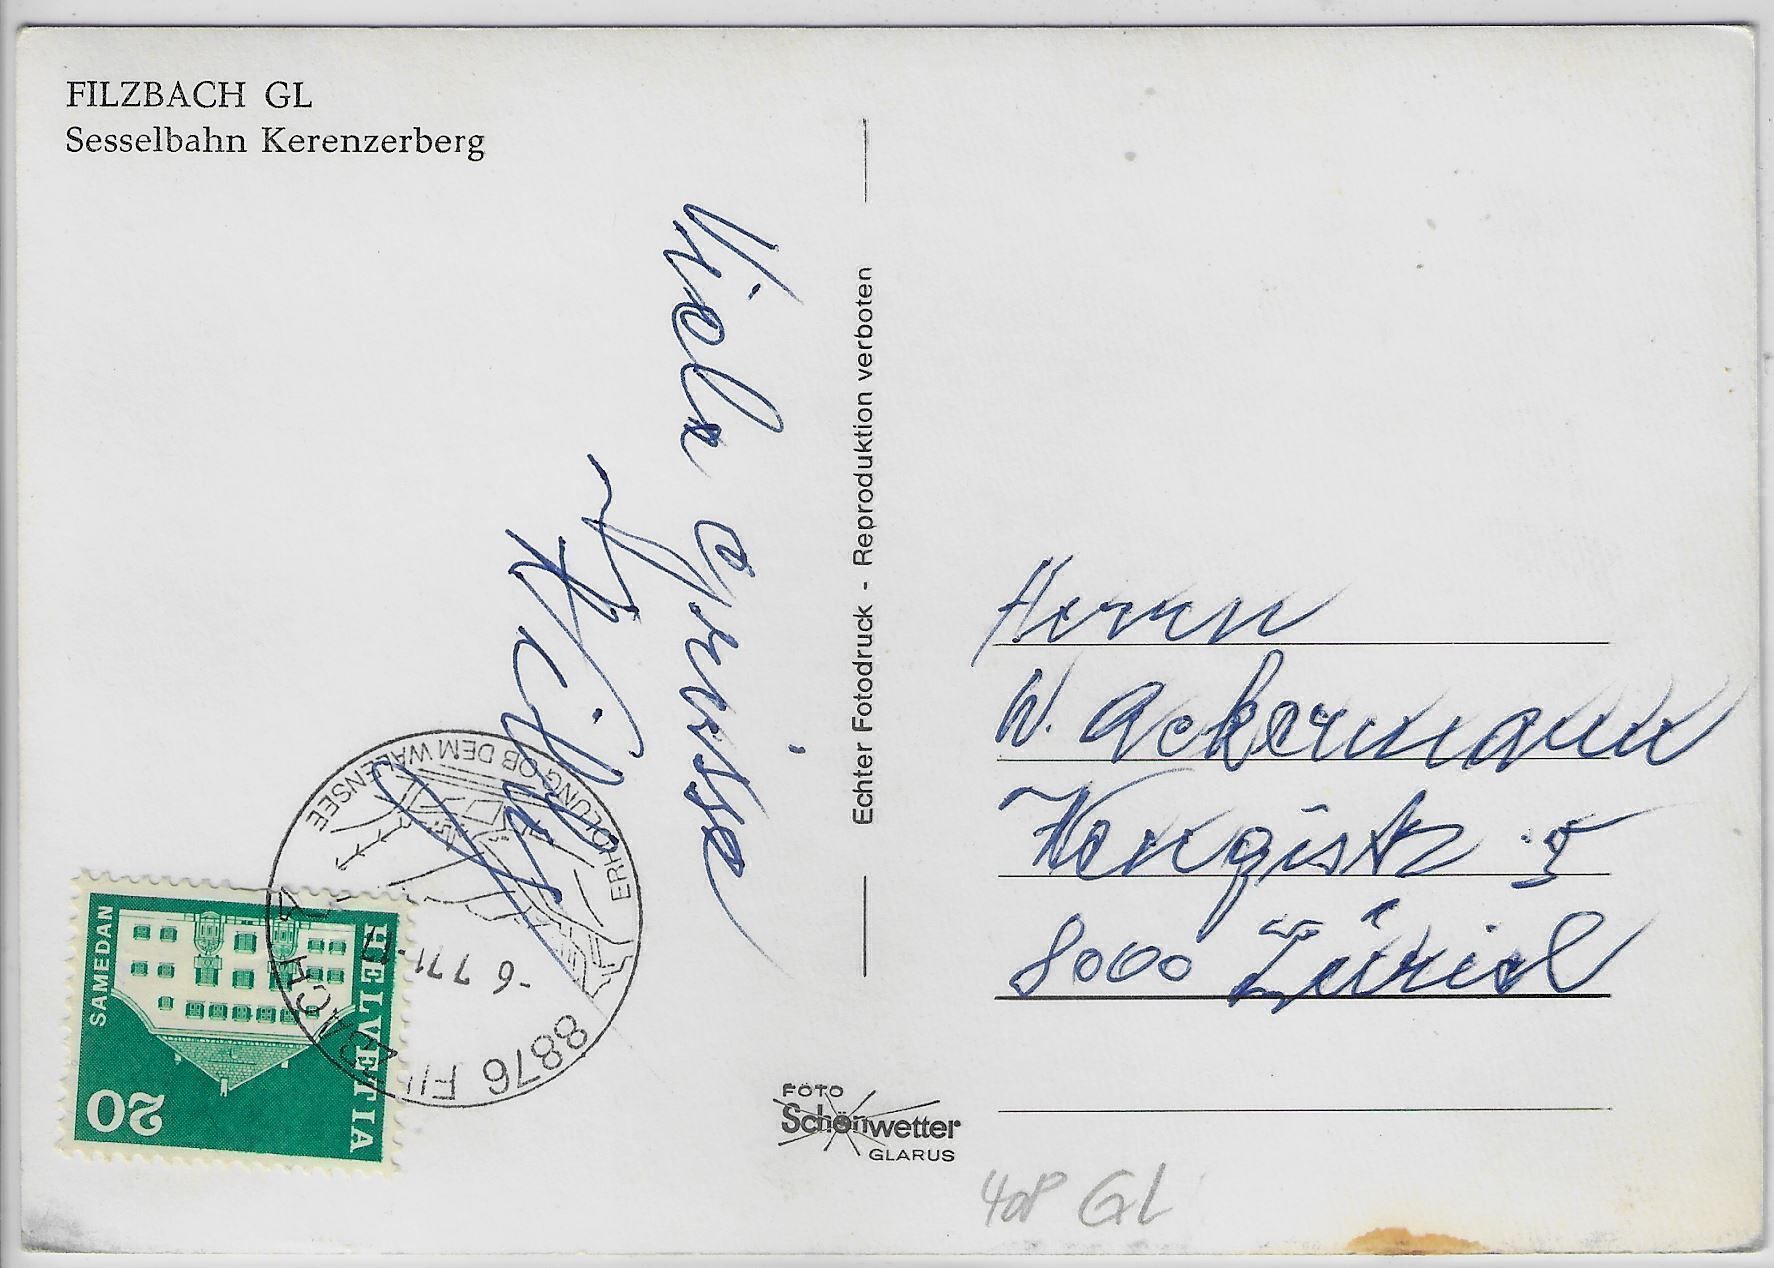 FILZBACH GL
Sesselbahn Kerenzerberg
Viele Grüsse
Willy
Echter Fotodruck - Reproduktion verboten
Herrn
W. Ackermann
8000 Zürich
FOTO
Schönwetter
GLARUS
408 GL
HELVETIA
SAMEDAN
20
8876 FILZBACH
-6.7.71-17
ERHOLUNG OB DEM WALENSEE